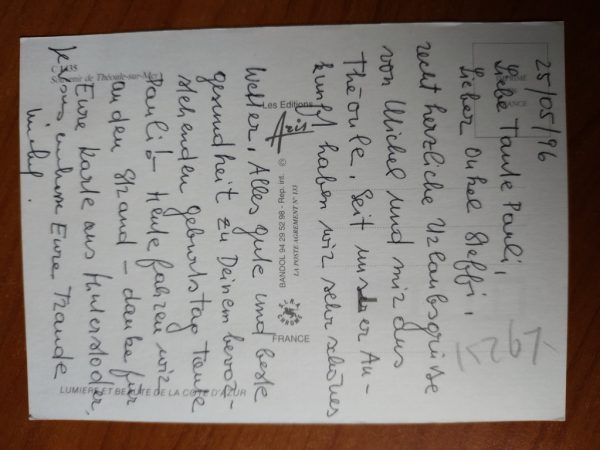 25/05/96
Liebe Tante Pauli,
Lieber Onkel Steffi,
recht herzliche Urlaubsgrüsse
von Michel und mir aus
Théoule. Seit unserer An-
kunft haben wir sehr schönes
Wetter. Alles gute und beste
gesundheit zu Deinem bevor-
stehenden geburtstag Tante
Pauli! Heute fahren wir
an den Strand - danke für
Eure Karte aus Hinterstoder.
Eure Traude
Michel.
C 35
Souvenir de Théoule-sur-Mer
Les Editions
Aris
LA POSTE EN
BANDOL 94 29 52 98 - Rep. Int. ©
FRANCE
LUMIERE ET BEAUTE DE LA COTE D'AZUR
FRANCE